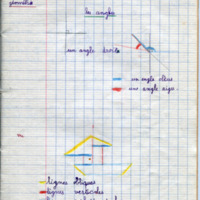 géométrie
les angles
un angle droit
un angle obtus
un angle aigu
lignes obliques
lignes verticales